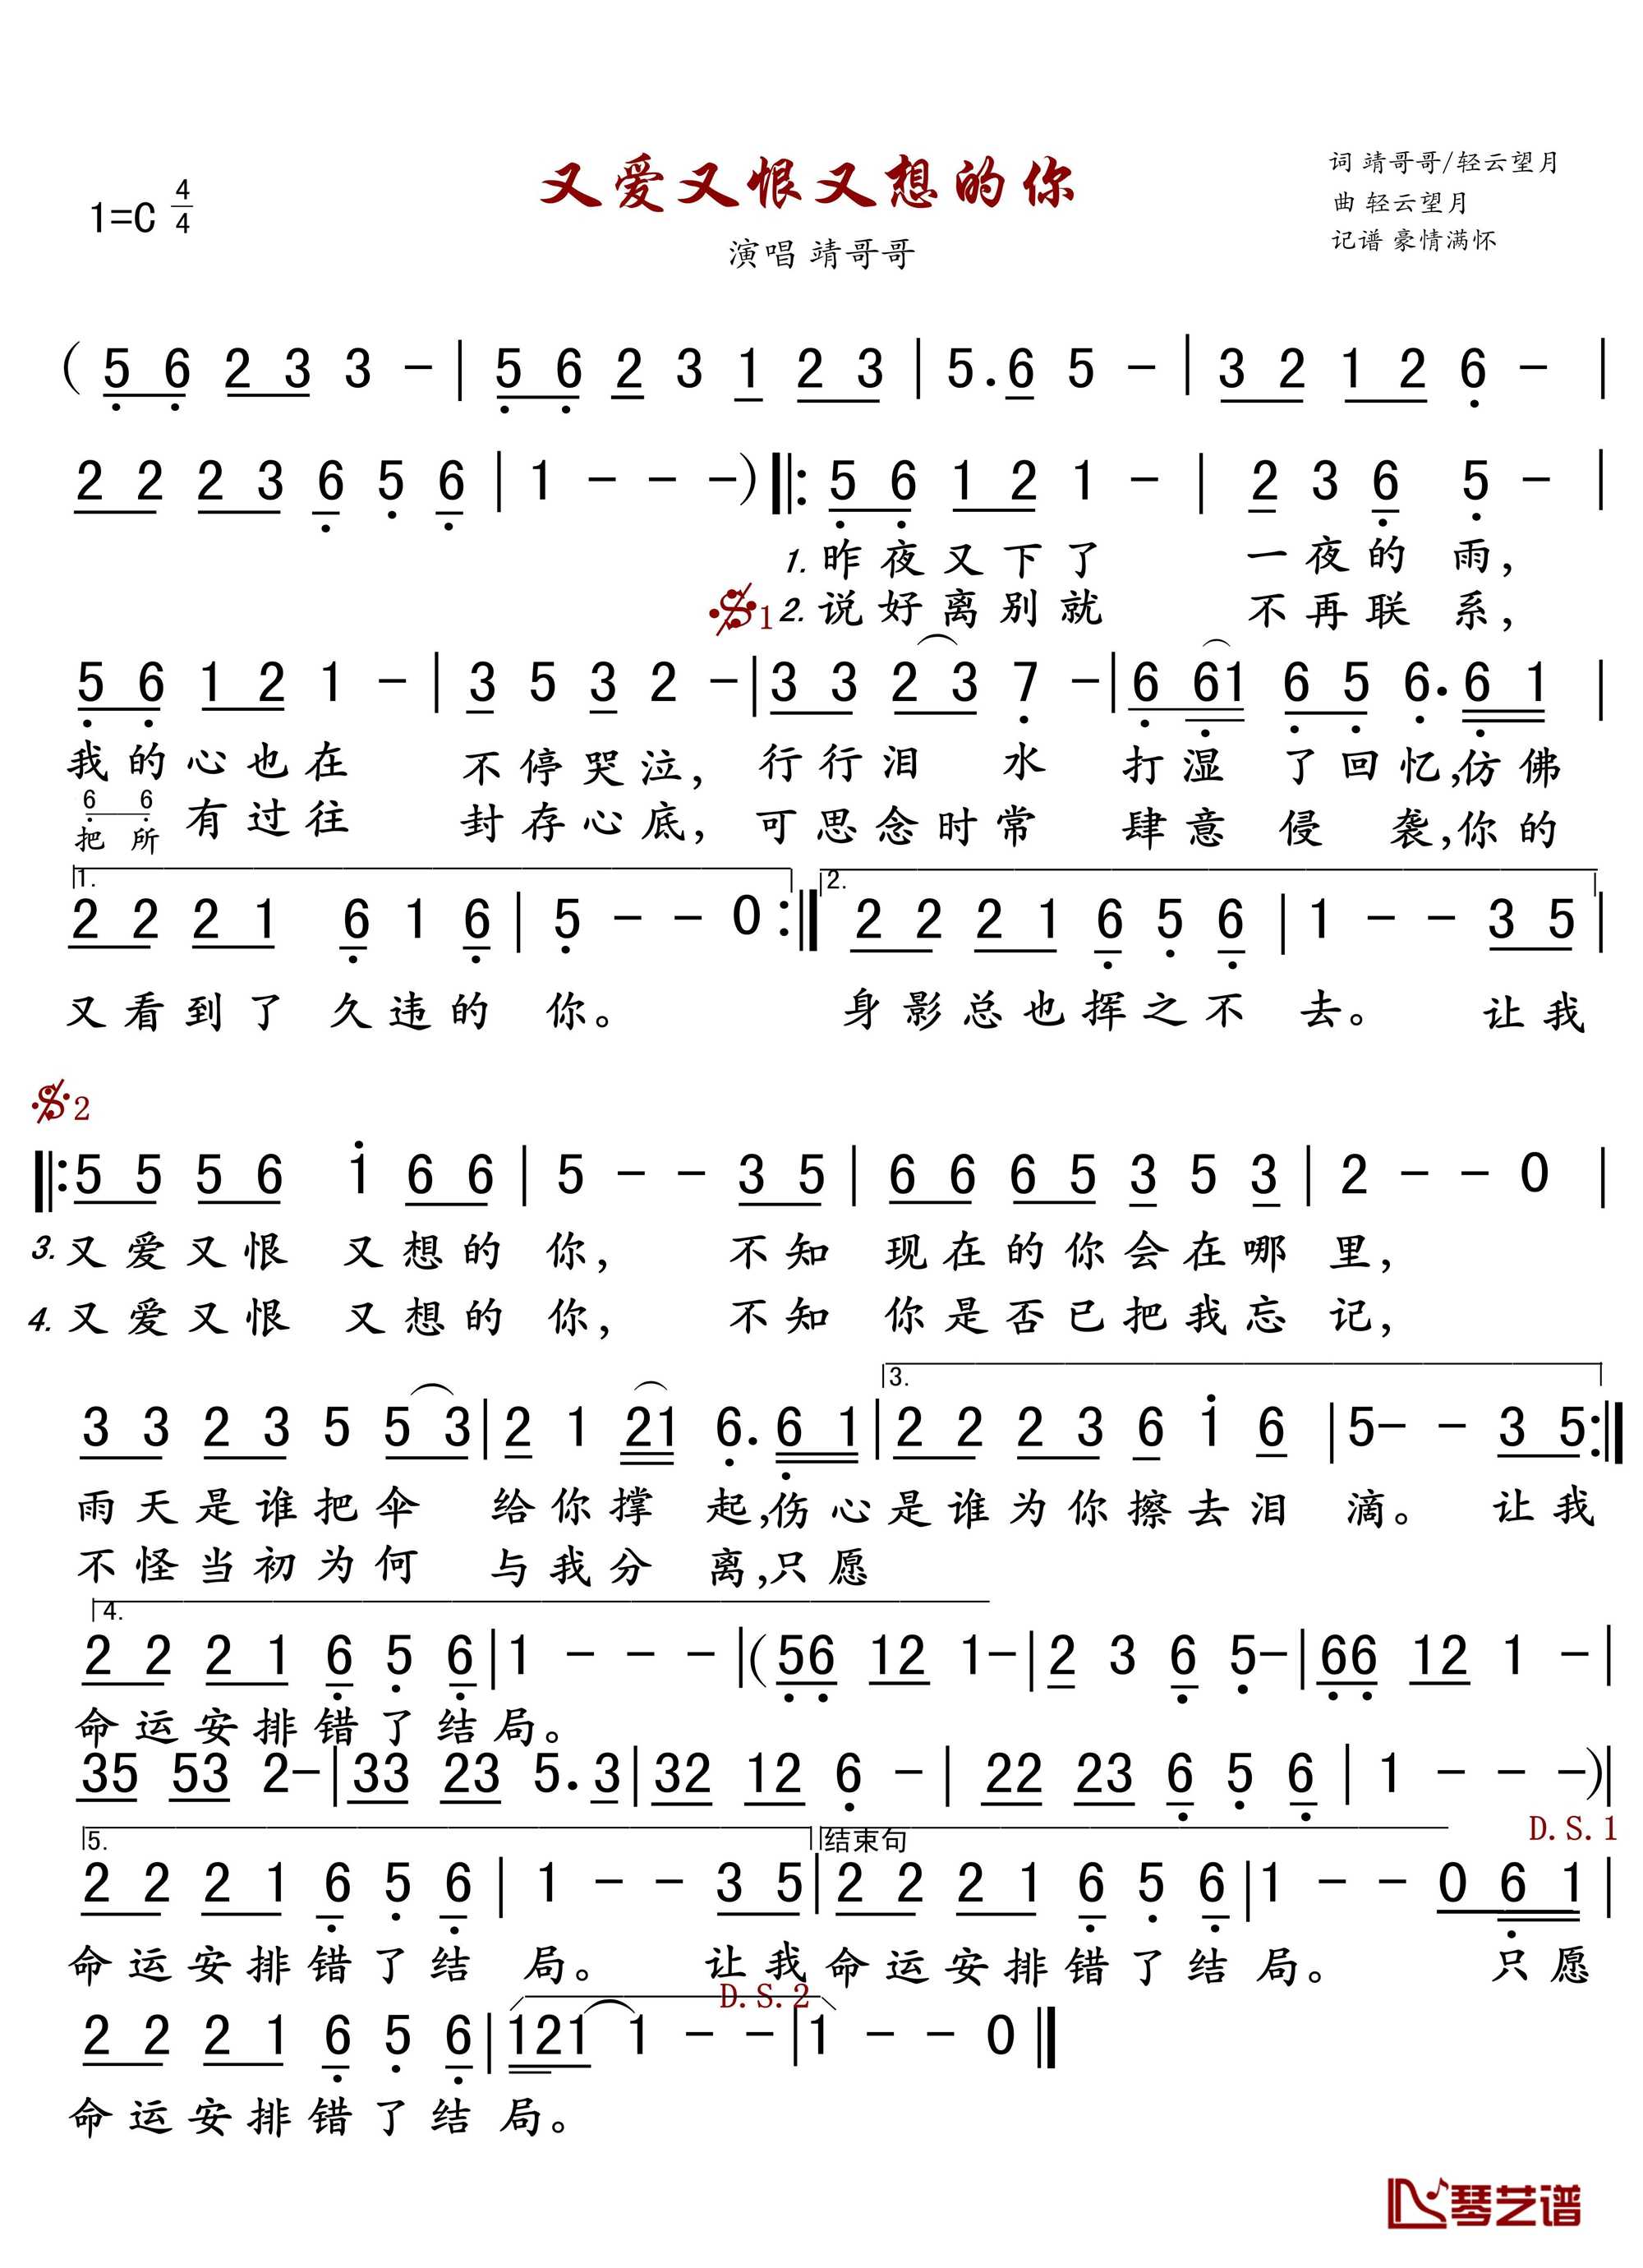 又爱又恨又想的你
词 靖哥哥/轻云望月
1=C 4/4
曲 轻云望月
演唱 靖哥哥
记谱 豪情满怀
( 5 6 2 3 3 - | 5 6 2 3 1 2 3 | 5. 6 5 - | 3 2 1 2 6 - |
2 2 2 3 6 5 6 | 1 - - -) ‖: 5 6 1 2 1 - | 2 3 6 5 - |
1. 昨夜又下了 一夜的雨,
𝄋1 2. 说好离别就 不再联系,
5 6 1 2 1 - | 3 5 3 2 - | 3 3 2 3 7 - | 6 61 6 5 6. 6 1 |
我的心也在 不停哭泣, 行行泪水 打湿了回忆,仿佛
6 6
把所有过往 封存心底, 可思念时常 肆意侵袭,你的
1. 2.
2 2 2 1 6 1 6 | 5 - - 0 :‖ 2 2 2 1 6 5 6 | 1 - - 3 5 |
又看到了久违的你。 身影总也挥之不去。 让我
𝄋2
‖: 5 5 5 6 i 6 6 | 5 - - 3 5 | 6 6 6 5 3 5 3 | 2 - - 0 |
3. 又爱又恨又想的你, 不知现在的你会在哪里,
4. 又爱又恨又想的你, 不知你是否已把我忘记,
3.
3 3 2 3 5 5 3 | 2 1 21 6. 6 1 | 2 2 2 3 6 i 6 | 5 - - 3 5 :‖
雨天是谁把伞 给你撑起,伤心是谁为你擦去泪滴。 让我
不怪当初为何 与我分离,只愿
4.
2 2 2 1 6 5 6 | 1 - - - | (56 12 1 - | 2 3 6 5 - | 66 12 1 - |
命运安排错了结局。
35 53 2 - | 33 23 5. 3 | 32 12 6 - | 22 23 6 5 6 | 1 - - -) |
D.S.1
5. 结束句
2 2 2 1 6 5 6 | 1 - - 3 5 | 2 2 2 1 6 5 6 | 1 - - 0 6 1 |
命运安排错了结局。 让我命运安排错了结局。 只愿
D.S.2
2 2 2 1 6 5 6 | 121 1 - - | 1 - - 0 ‖
命运安排错了结局。
琴艺谱